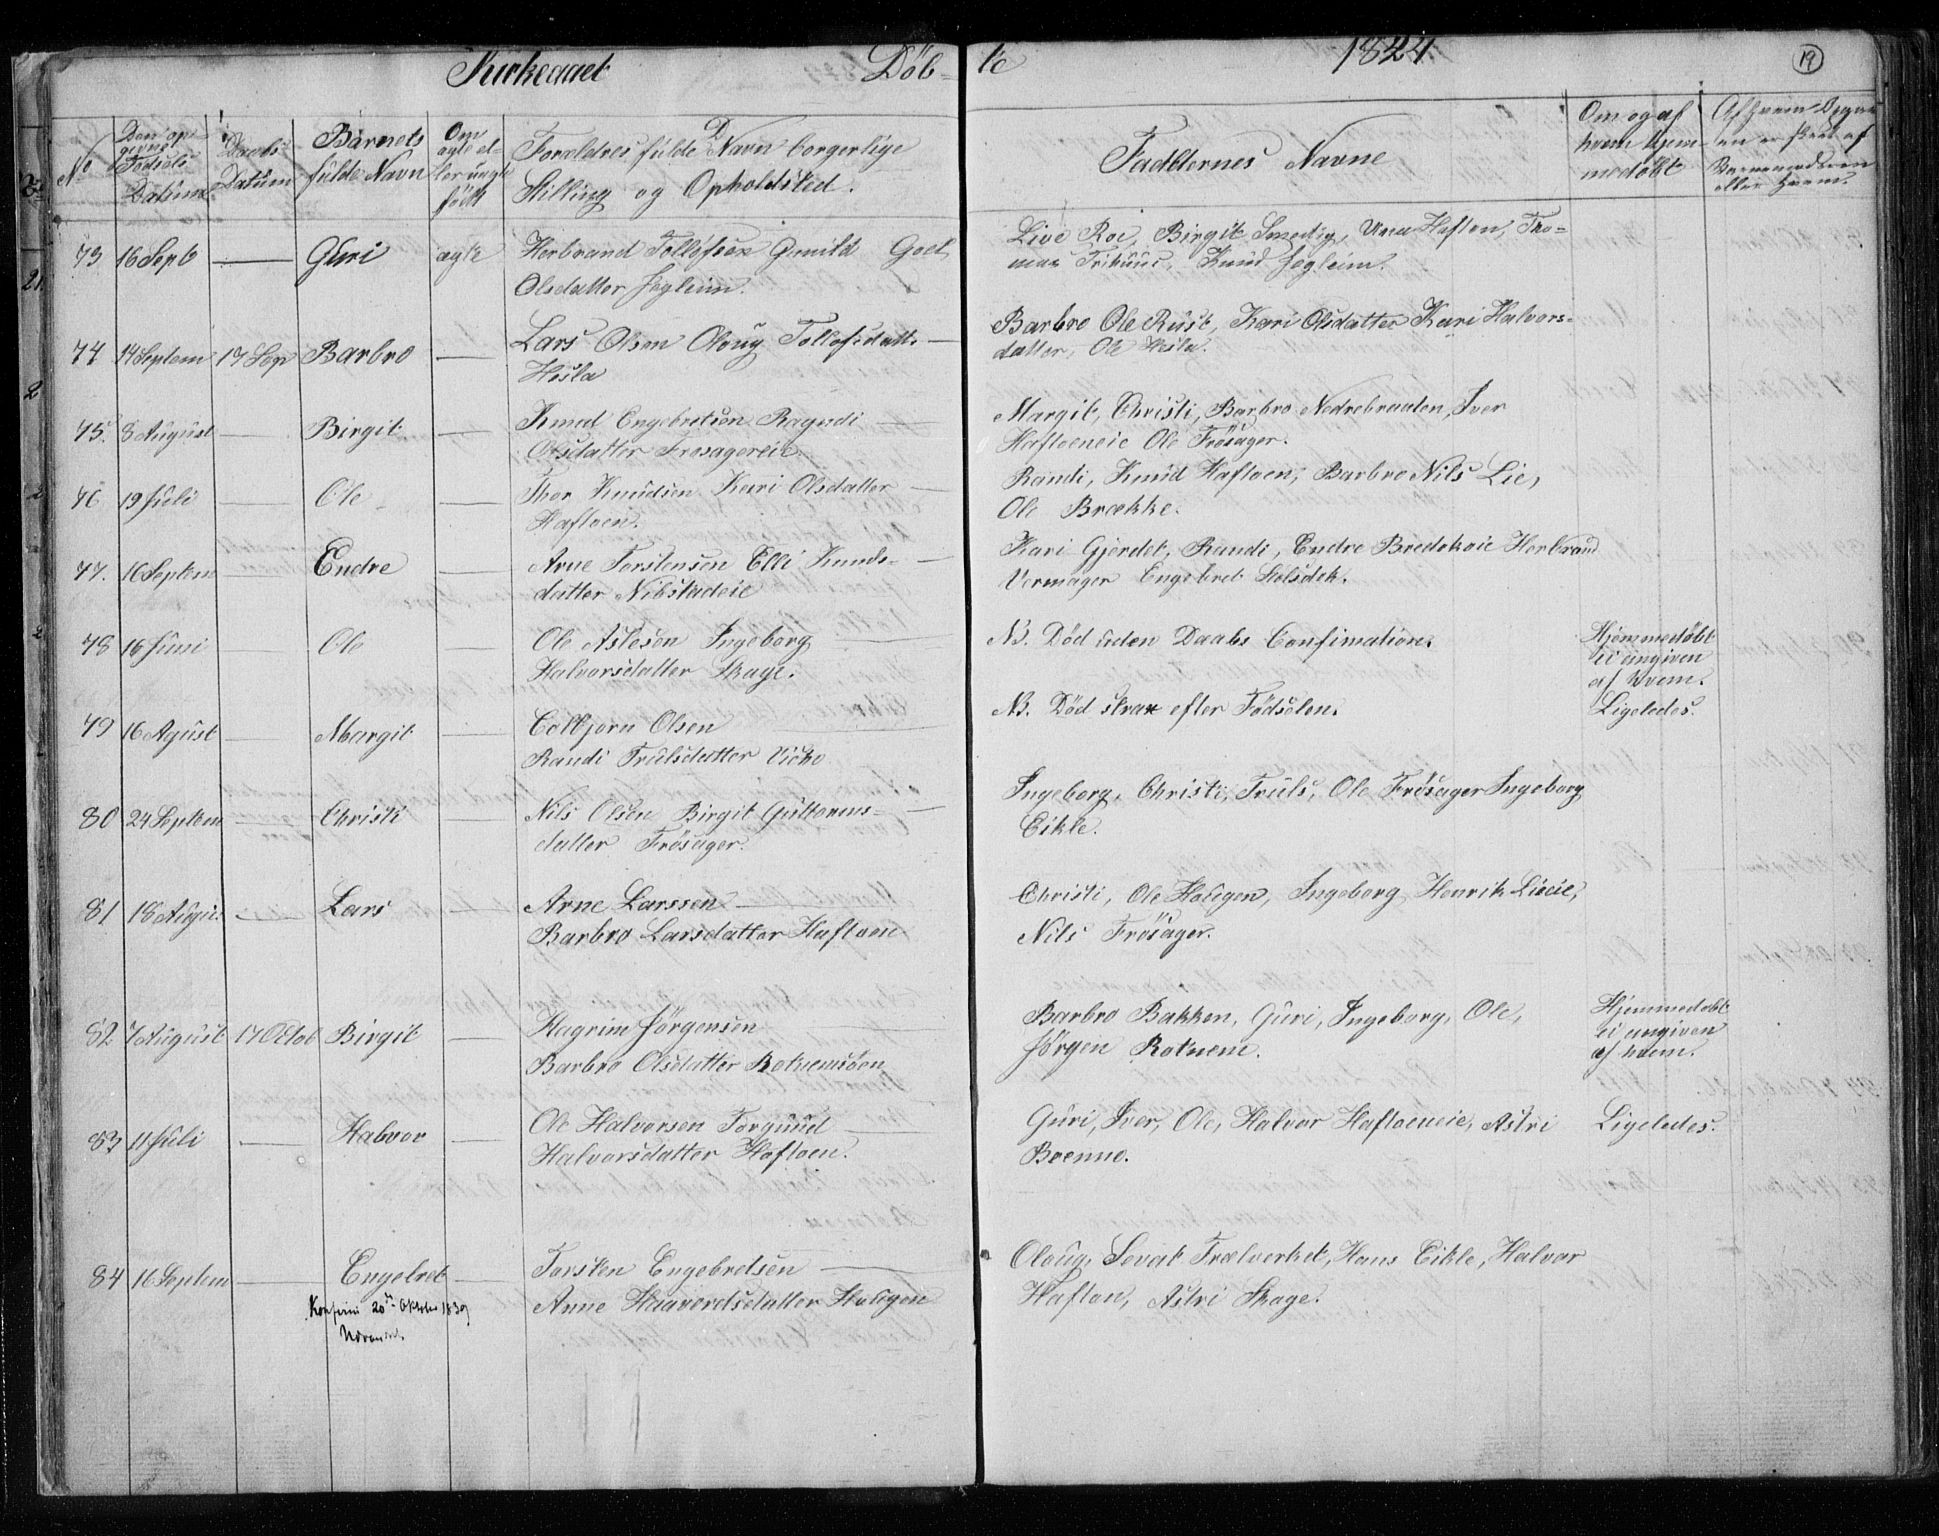 Kirkeaaret Döb- te 1824
19
No
Den op-
givne
Födsels
Datum
Daabs-
Datum
Barnets
fulde Navn
Om
ægte el-
ler uægte
födt
Forældres fulde Navn borgerlige
Stilling og Opholdsted.
Faddernes Navne
Om og af
hvem hjem-
medöbt
73 16 Sept Guri ægte Herbrand Tollöfsen Gunild Goel
Olsdatter Jegleim.
Live Roi, Birgit Smedig, Una Hafton, Tho-
mas Trihuus, Knud Jegleim.
74 14 Septem 17 Sep Barbro Lars Olsen Oloug Tollofsdatt.
Hesla
Barbro Ole Rust, Kari Olsdatter Kari Halvors-
datter, Ole Hesla.
75. 8 August Birgit Knud Engebretsen Ragndi
Olsdatter Frosagereie.
Margit, Christi, Barbro Nedrebraaten, Iver
Haftoeneie Ole Frösager.
76 19 Juli Ole Thor Knudsen Kari Olsdatter
Haftoen.
Randi, Knud Haftoen, Barbro Nils Lie,
Ole Brække.
77. 16 Septem Endre Arne Torstensen Elli Knuds-
datter Nibstadeie
Kari Gjerdet, Randi, Endre Bredokeie Herbrand
Vermager Engebret Stolsdok.
78 16 Juni Ole Ole Aslesen Ingeborg
Halvorsdatter Skage.
NB. Död uden Daabs Confimation.
Hjemmedöbt
ei angiven
af hvem.
79 16 Agust Margit Colbjorn Olsen
Randi Trulsdatter Viko
NB. Död strax efter Födselen.
Ligeledes.
80 24 Septem Christi Nils Olsen Birgit Guttorms-
datter Frösager.
Ingeborg, Christi, Truls, Ole Frösager Ingeborg
Eikle.
81 18 Augus Lars Arne Larssen
Barbro Larsdatter Haftoen
Christi, Ole Hougen, Ingeborg Henrik Lieeie,
Nils Frösager.
82 7 August 17 Octob Birgit Hagrim Jörgensen
Barbro Olsdatter Rotnemsöen
Barbro Bakken, Guri, Ingeborg, Ole,
Jörgen Rotnem.
Hjemmedöbt
ei angiven
af hvem.
83 11 Juli Halvor Ole Halvorsen Torguud
Halvorsdatter Haftoen.
Guri, Iver, Ole, Halvor Haftoeneie, Astri
Boenne.
Ligeledes.
84 16 Septem Engelret Torsten Engebretsen
Anne Haavordsdatter Hougen
Oloug, Sevat Trælverket, Hans Eikle, Halvor
Hafton, Astri Skage.
Konfirm 20de Oktober 1839